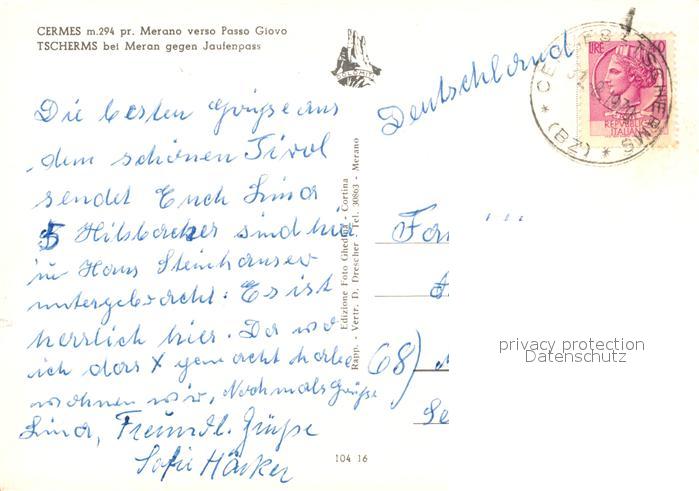 CERMES m.294 pr. Merano verso Passo Giovo
TSCHERMS bei Meran gegen Jaufenpass
Die besten Grüße aus
dem schönen Tirol
sendet Euch Lina
5 Hilsbacher sind hier
im Haus Steinhauser
untergebracht. Es ist
herrlich hier. Da wo
ich das X gemacht habe
wohnen wir, Nochmals Grüße
Lina, Freundl. Grüße
Sofie
Edizione Foto Ghedina - Cortina
Rapp. - Vertr. D. Drescher - Tel. 30863 - Merano
104 16
Deutschland
LIRE
REPVBBLICA
ITALIANA
CERMES TSCHERMS
* (BZ) *
Fam
68)
privacy protection
Datenschutz